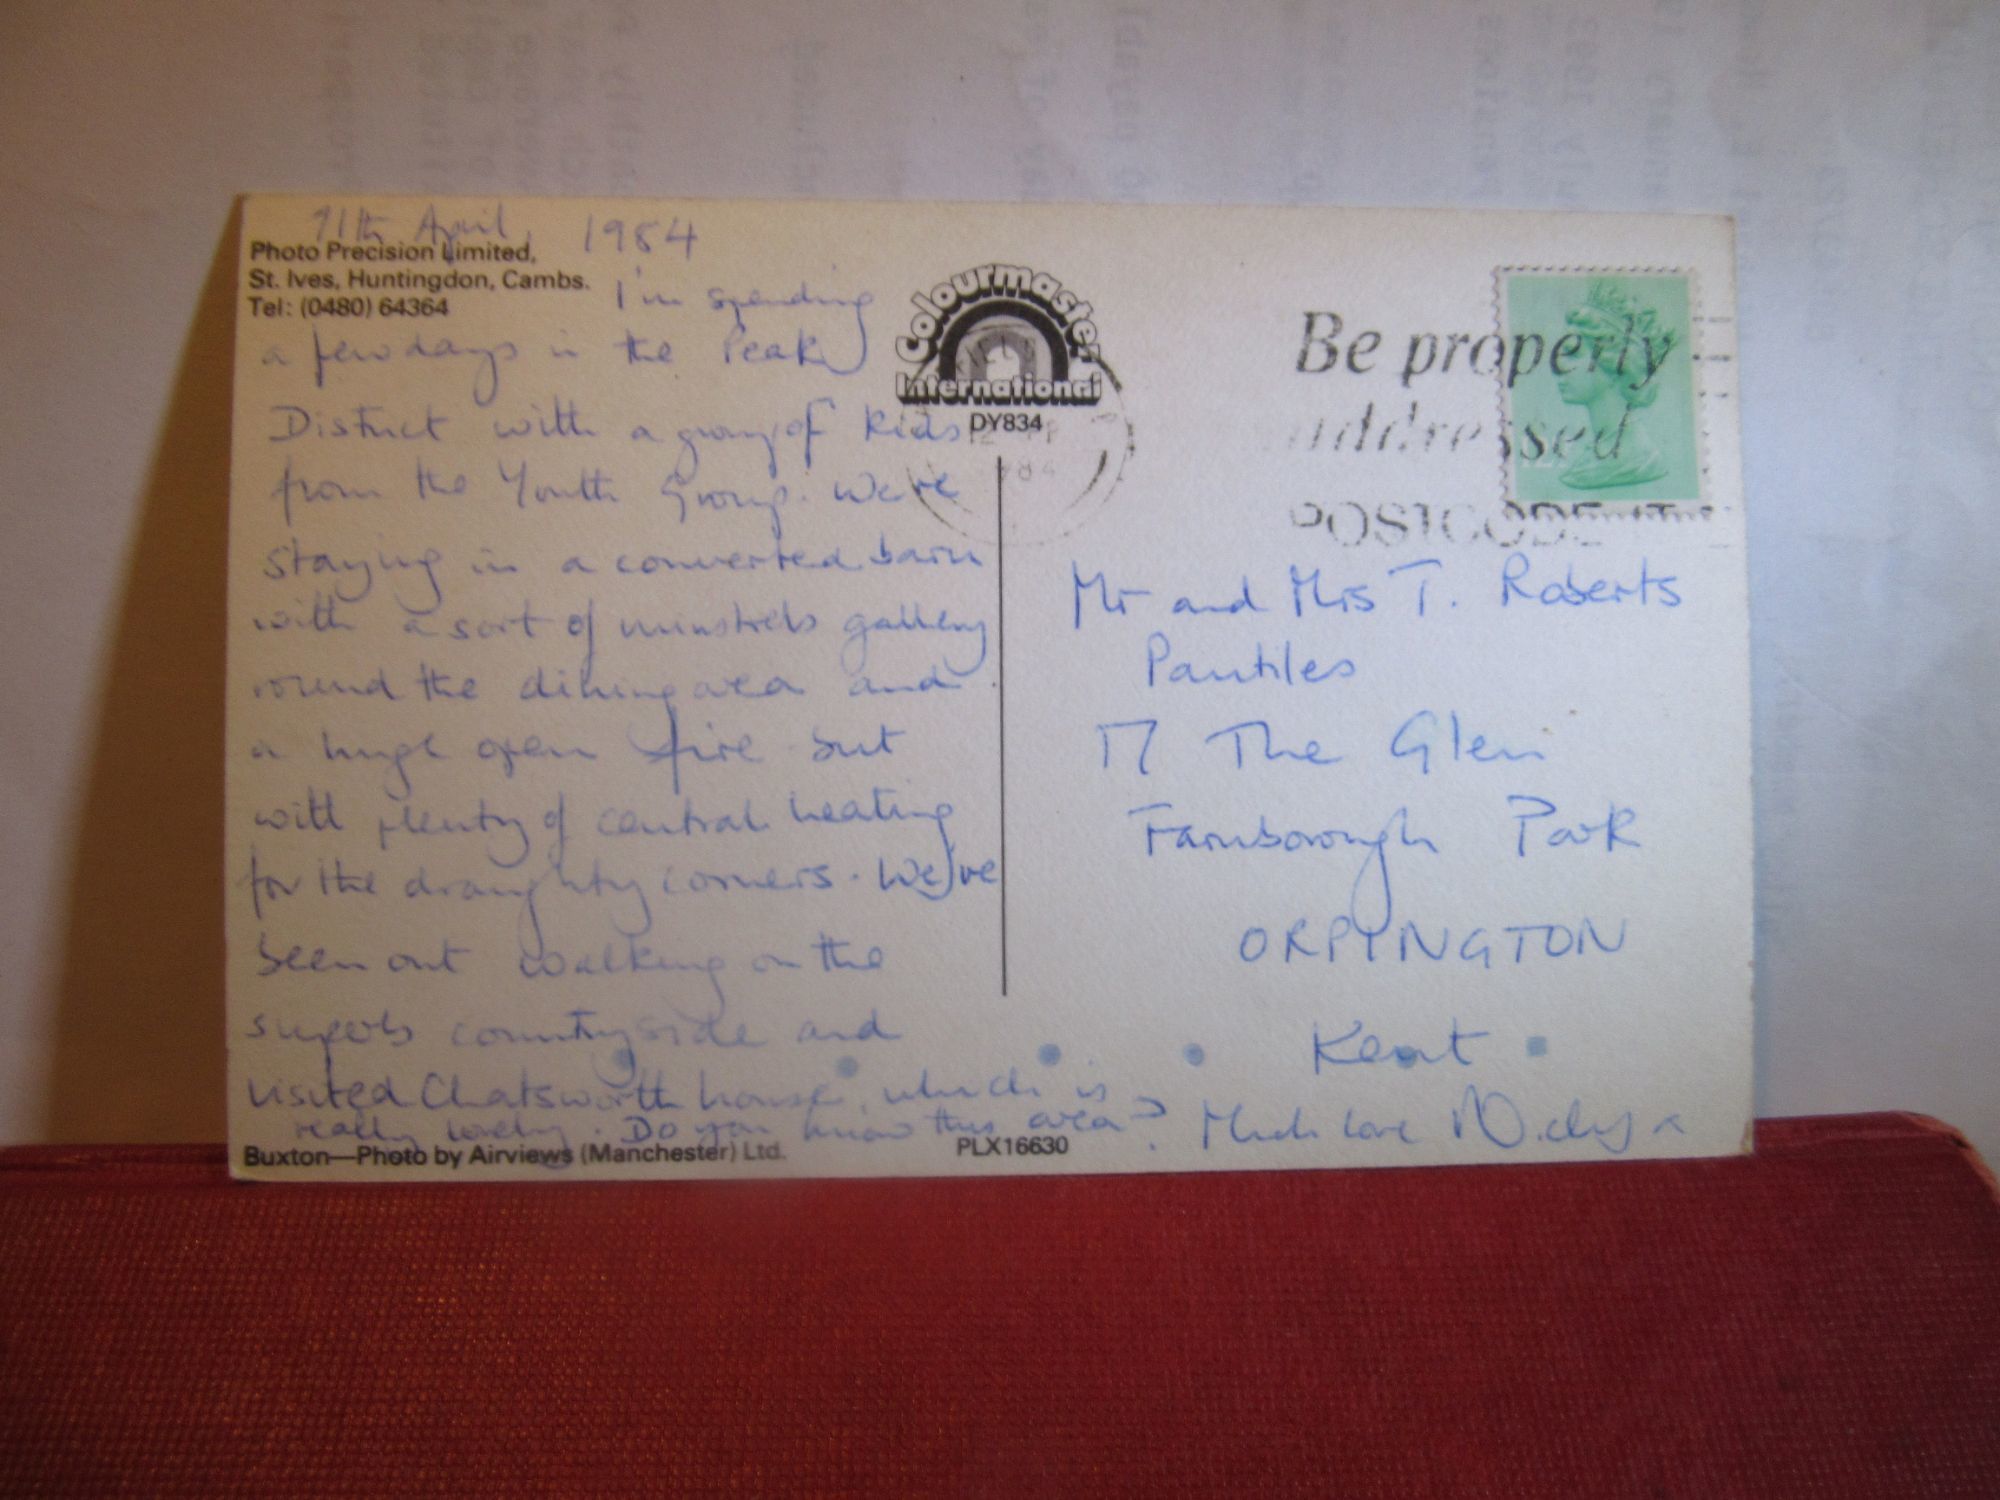 April, 1984
Photo Precision Limited,
St. Ives, Huntingdon, Cambs.
Tel: (0480) 64364
I'm spending
a few days in the Peak
District with a group of kids
from the Youth Group. We're
staying in a converted barn
with a sort of minstrels gallery
round the dining area and
a huge open fire but
with plenty of central heating
for the draughty corners. We've
been out walking on the
superb countryside and
visited Chatsworth house, which is
really lovely. Do you know this area? Much love Nicky x
Buxton—Photo by Airviews (Manchester) Ltd.
PLX16630
Colourmaster
International
DY834
Be properly
addressed
POSTCODE IT
Mr and Mrs T. Roberts
Pantiles
17 The Glen
Farnborough Park
ORPINGTON
Kent